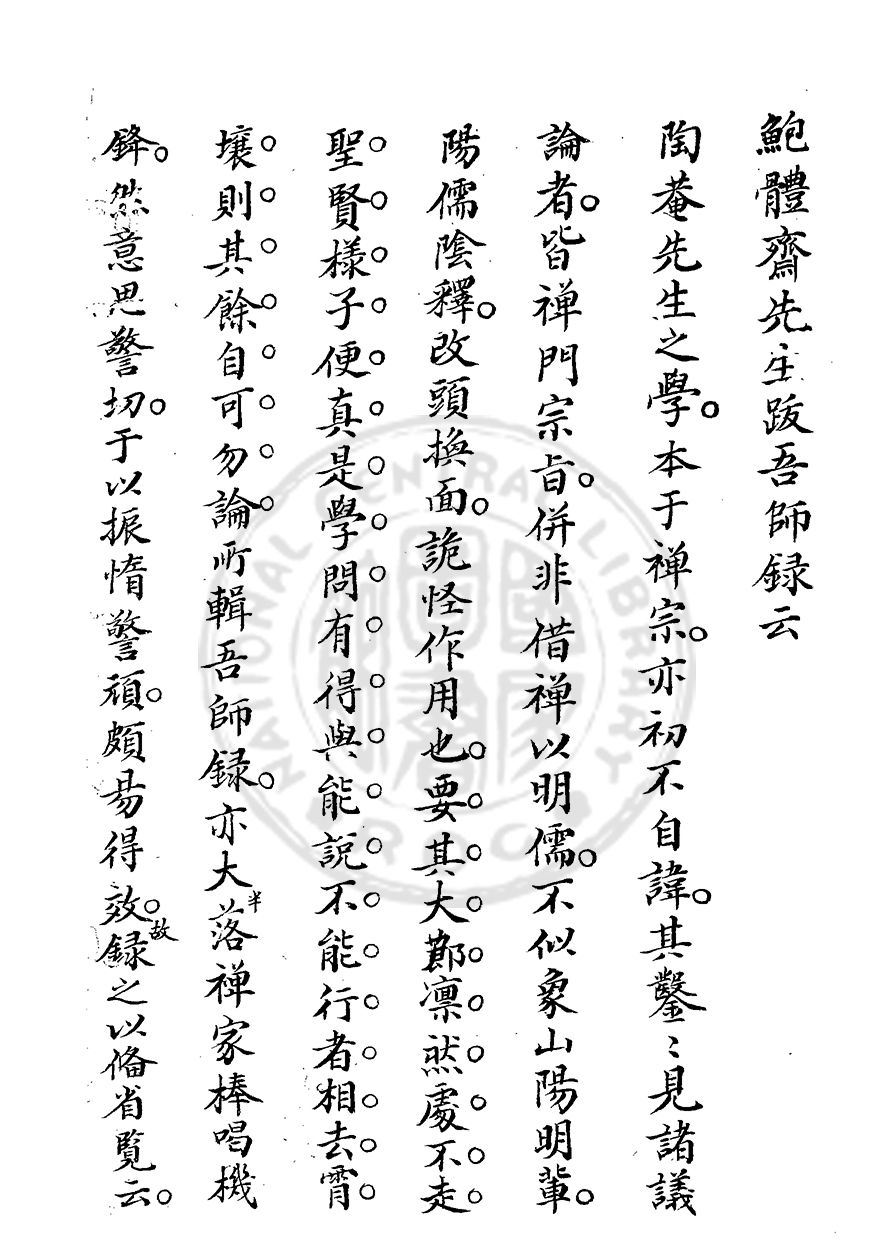 鮑體齋先生跋吾師録云
陶菴先生之學。本于禅宗。亦初不自諱。其鑿〻見諸議
論者。皆禅門宗旨。併非借禅以明儒。不似象山陽明輩。
陽儒陰釋。改頭換面。詭怪作用也。要其大節凛然處不走
聖賢樣子便真是學問有得與能說不能行者相去霄
壤則其餘自可勿論所輯吾師録。亦大半落禅家棒喝機
鋒。然意思警切。于以振惰警頑。頗易得效。故録之以俻省覽云。
NATIONAL CENTRAL LIBRARY
R.O.C